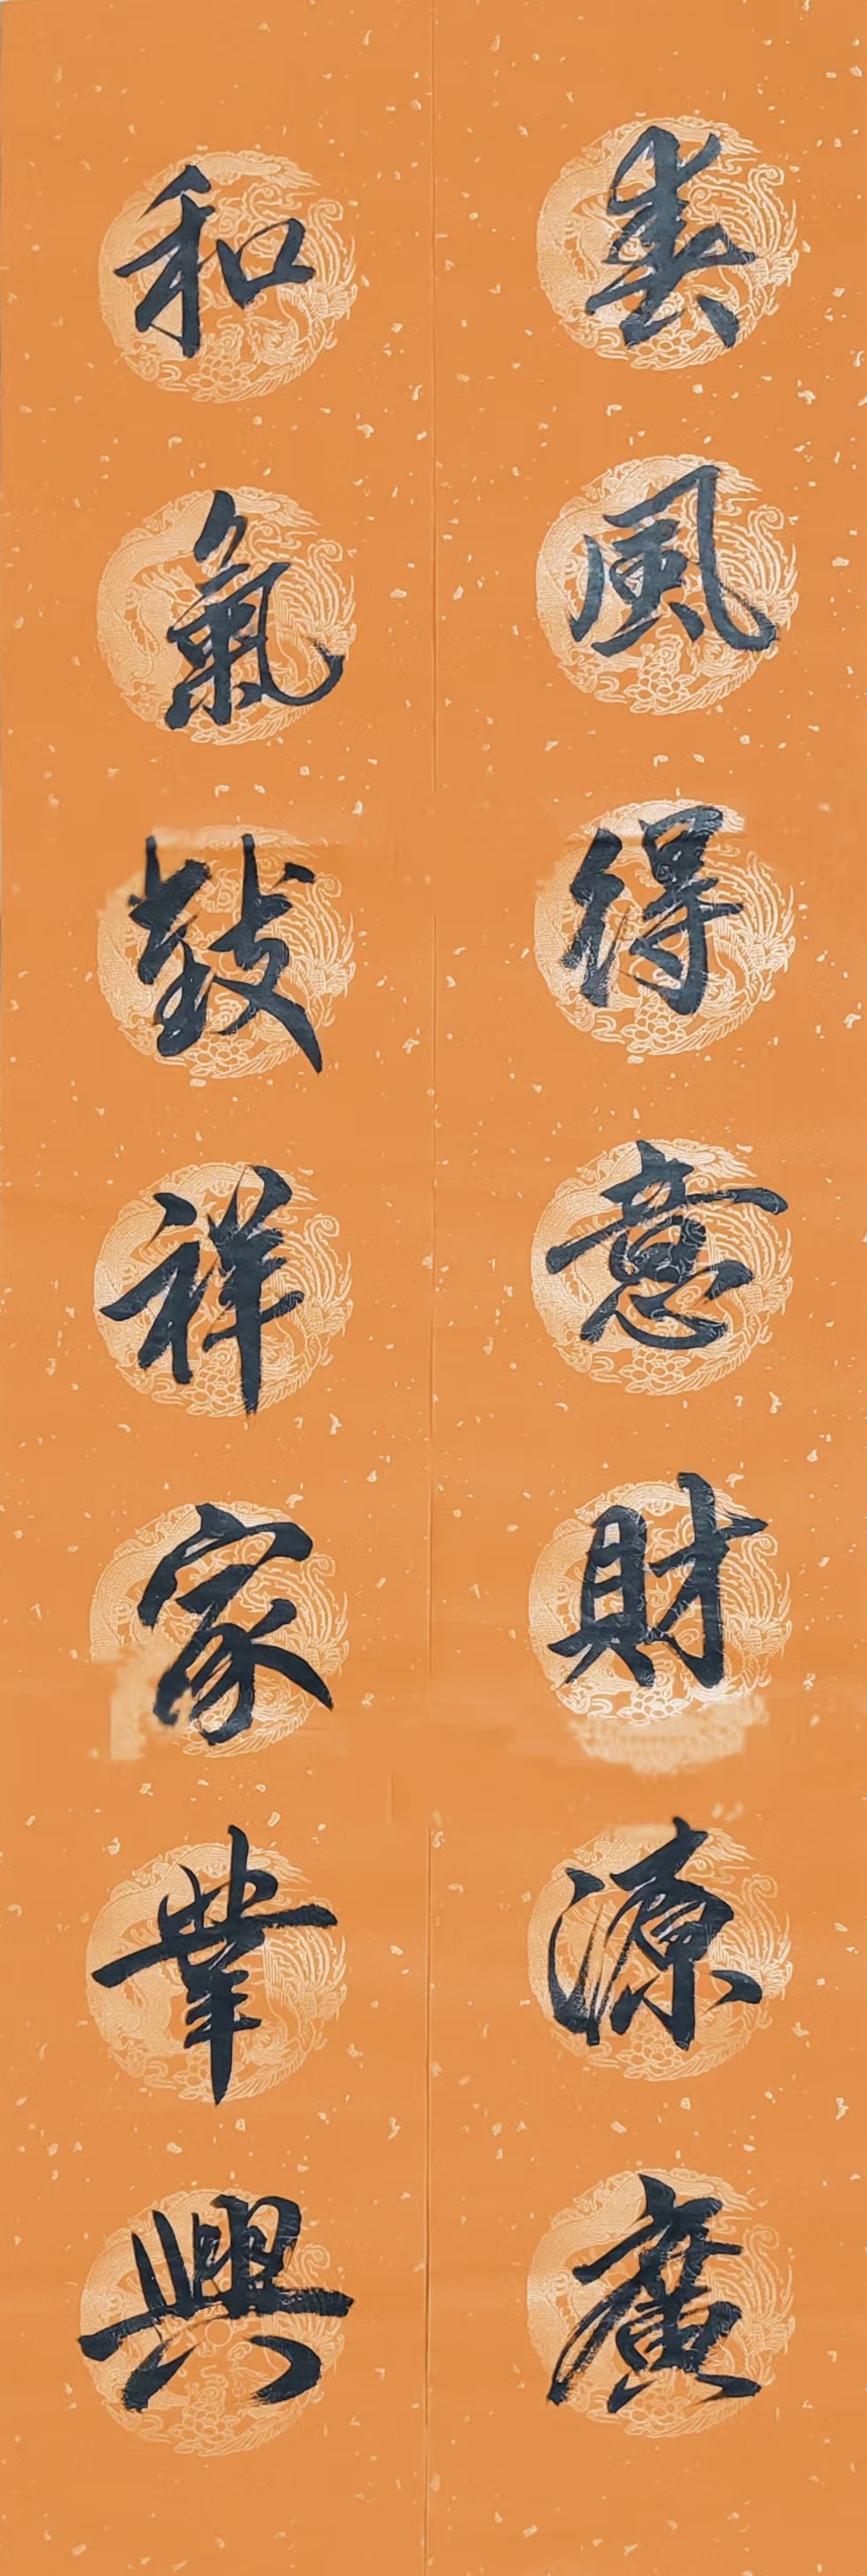 春風得意財源廣
和氣致祥家業興